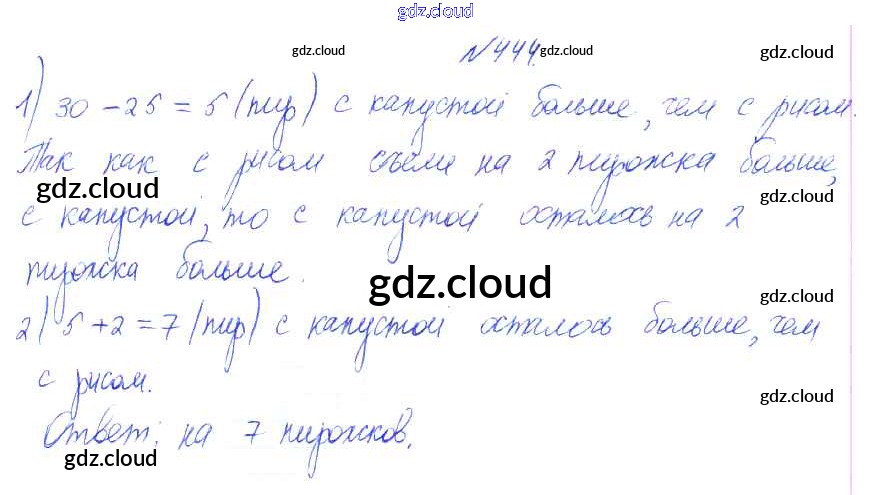 gdz.cloud
№444.
gdz.cloud gdz.cloud
1) 30 - 25 = 5 (пир) с капустой больше, чем с рисом.
Так как с рисом съели на 2 пирожка больше,
gdz.cloud gdz.cloud
с капустой, то с капустой осталось на 2
пирожка больше.
gdz.cloud gdz.cloud
2) 5 + 2 = 7 (пир) с капустой осталось больше, чем
с рисом.
gdz.cloud
Ответ: на 7 пирожков.
gdz.cloud